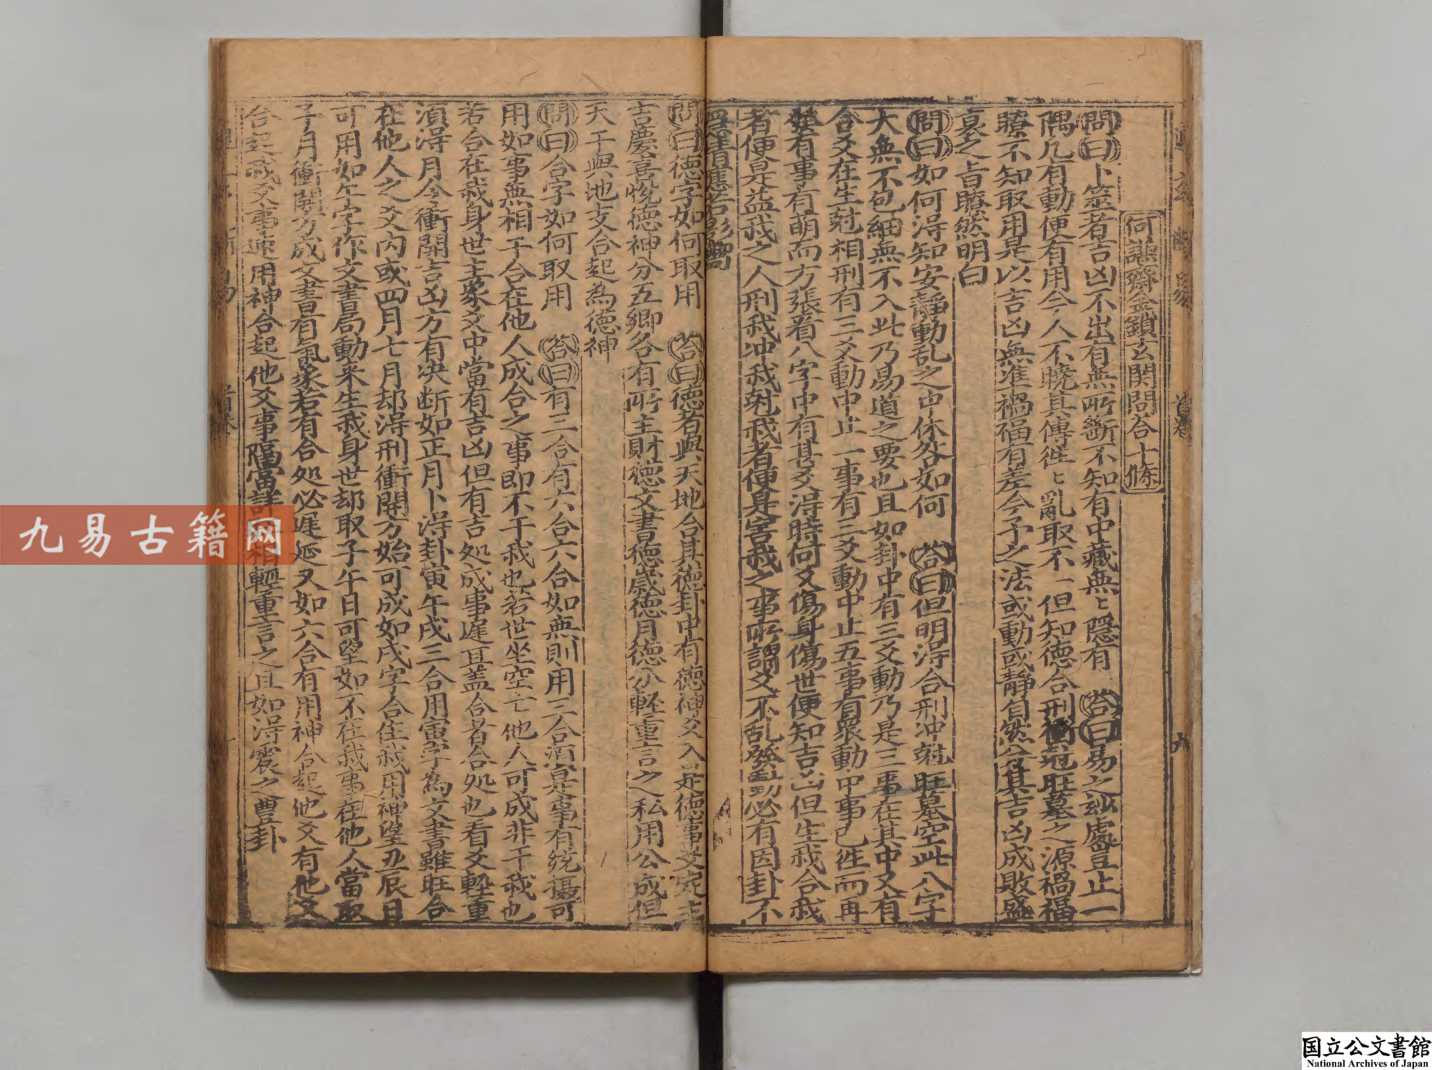 何讌齋金鎖玄関問答十條
問曰卜筮者吉凶不出有無所断不知有中藏無〻隱有 答曰易之玅處豈止一
隅凡有動便有用今人不曉其傳徃〻亂取不一但知德合刑衝尅旺墓之源禍福
瞭不知取用是以吉凶無准禍福有差今予之法或動或静自然分其吉凶成敗盛
衰之旨瞭然明白
問曰如何得知安靜動乱之中休咎如何 答曰但明得合刑冲尅旺墓空此八字
大無不包細無不入此乃易道之要也且如卦中有三爻動乃是三事在其中又有
合爻在生尅相刑有三爻動中止一事有二爻動中止五事有眾動中事已徃而再
有事有萌而方張看八字中有甚爻得時何爻傷身傷世便知吉凶但生我合我
者便是益我之人刑我冲我尅我者便是害我之事所謂爻不乱發動必有因卦不
問曰德字如何取用 答曰德者與天地合其德卦中有德神爻入
吉慶喜悅德神分五鄉各有所主財德文書德歲德月德分輕重言之私用公成但
天干與地支合起為德神
問曰合字如何取用 答曰有三合有六合六合如無則用三合須是事有統攝可
用如事無相干合在他人成合之事即不干我也若世坐空亡他人可成非干我也
若合在我身世主象文中當有吉凶但有吉処成事遲耳蓋合者合処也看爻輕重
須得月令衝開吉凶方有决断如正月卜得卦寅午戌三合用寅字為文書雖旺合
在他人之爻内或四月七月却得刑衝開方始可成如戌字合住我用神望丑辰日
可用如午字作文書局動来生我身世却取子午日可望如不在我事在他人當取
子月衝開方成文書有氣象若有合処必遲延又如六合有用神合起他爻有他爻
合起我爻事速用神合起他爻事隔當詳輕重言之且如得震之豐卦
国立公文書館
National Archives of Japan
九易古籍网